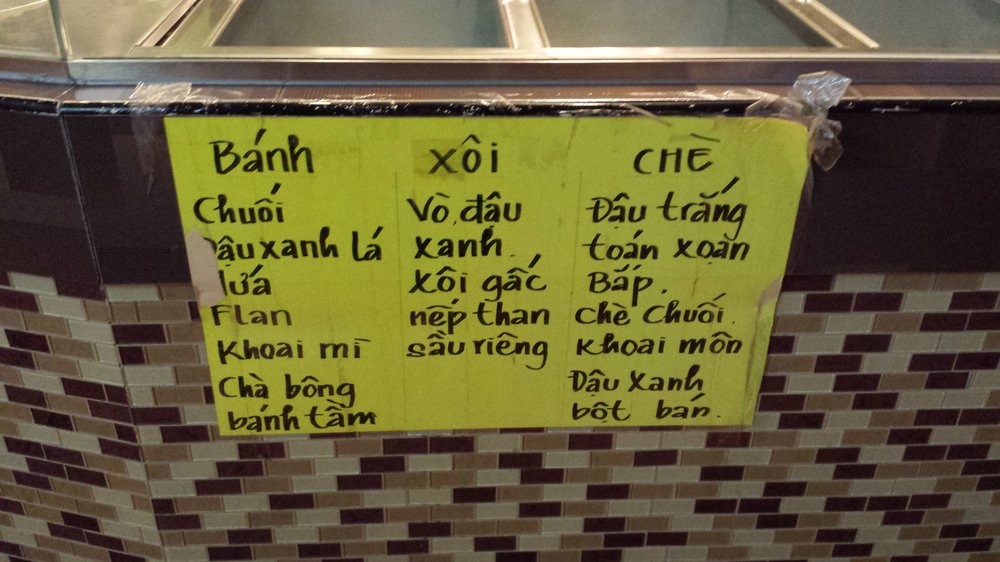 Bánh
Chuối
Đậu xanh lá
dứa
Flan
Khoai mì
Chà bông
bánh tầm
XÔI
Vò, đậu
xanh.
Xôi gấc
nếp than
sầu riêng
CHÈ
Đậu trắng
toán xoạn
Bắp.
chè Chuối.
Khoai môn
Đậu Xanh
bột bán.